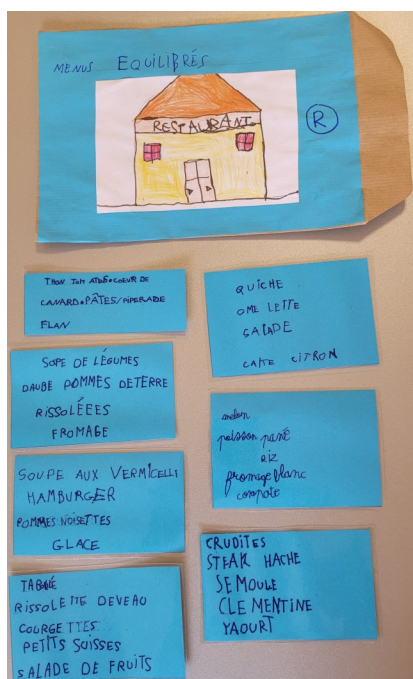 MENUS EQUILIBRÉS
RESTAURANT
R
THON TOMATES COEUR DE
CANARD PÂTES/PIPERADE
FLAN
SOPE DE LÉGUMES
DAUBE POMMES DETERRE
RISSOLÉEES
FROMAGE
SOUPE AUX VERMICELLI
HAMBURGER
POMMES NOISETTES
GLACE
RISSOLETTE DEVEAU
COURGETTES
PETITS SUISSES
SALADE DE FRUITS
QUICHE
OMELETTE
SALADE
CITRON
melon
poisson pané
RIZ
fromage blanc
compote
CRUDITES
STEAK HACHE
SEMOULE
CLEMENTINE
YAOURT